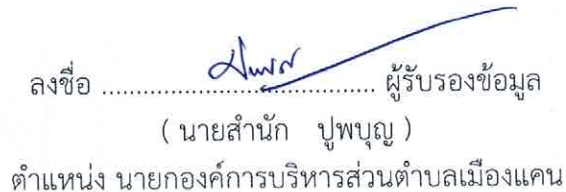 ลงชื่อ ................................................ ผู้รับรองข้อมูล
( นายสำนัก ปูพบุญ )
ตำแหน่ง นายกองค์การบริหารส่วนตำบลเมืองแคน